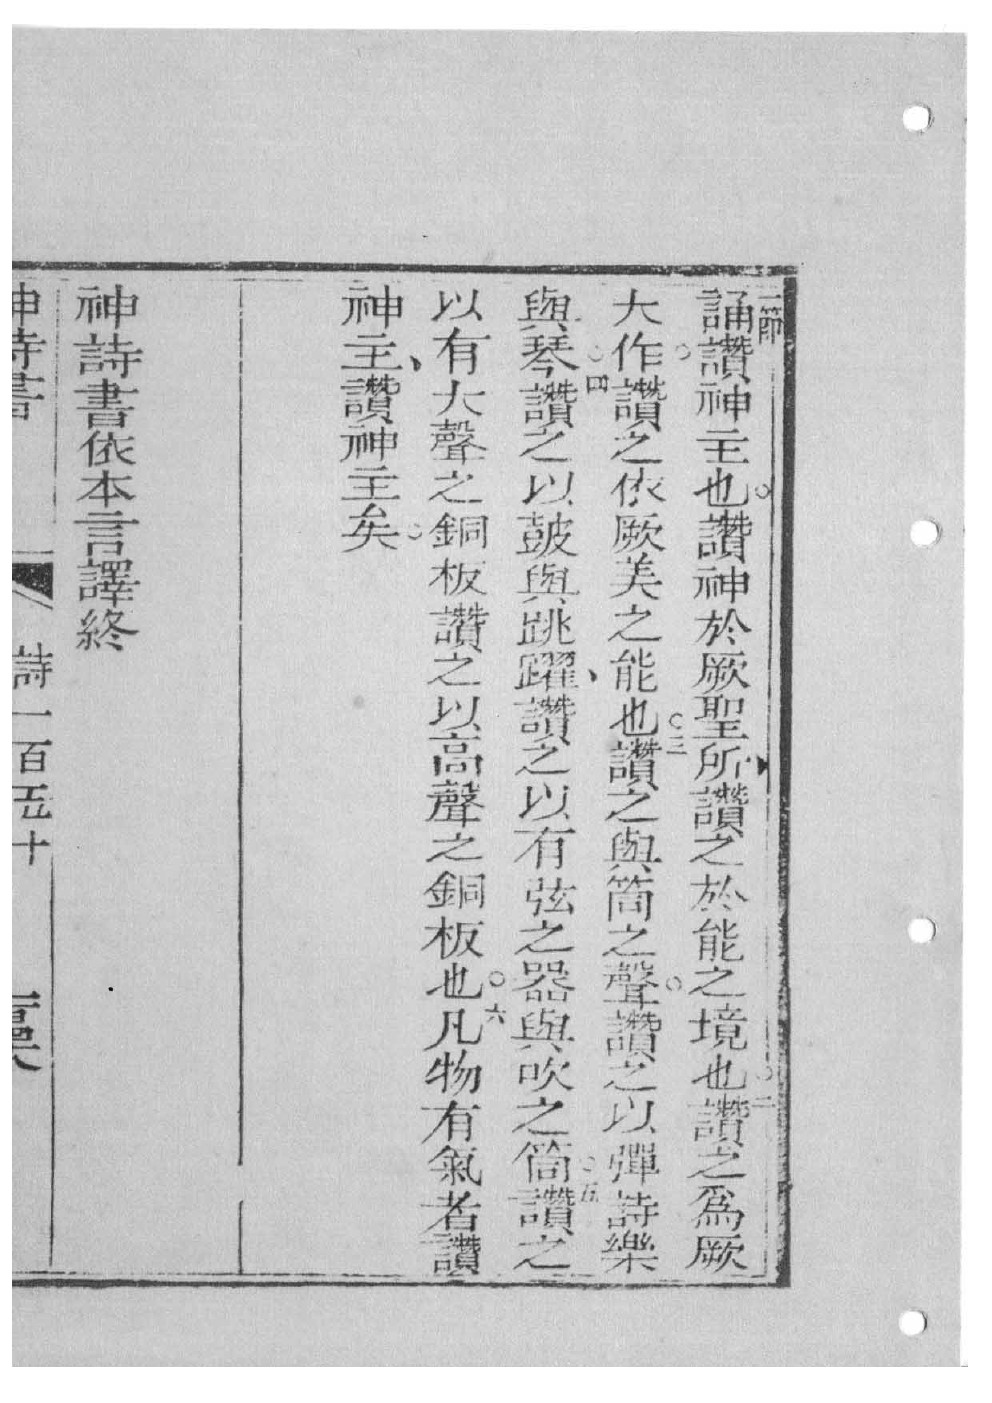 一節誦讚神主也○讚神於厥聖所讚之於能之境也○二讚之爲厥
大作○讚之依厥美之能也○三讚之與筒之聲○讚之以彈詩樂
與琴○四讚之以皷與跳躍、讚之以有弦之器與吹之筒○五讚之
以有大聲之銅板讚之以高聲之銅板也○六凡物有氣者讚
神主、讚神主矣○
神詩書依本言譯終
神詩書 詩一百五十